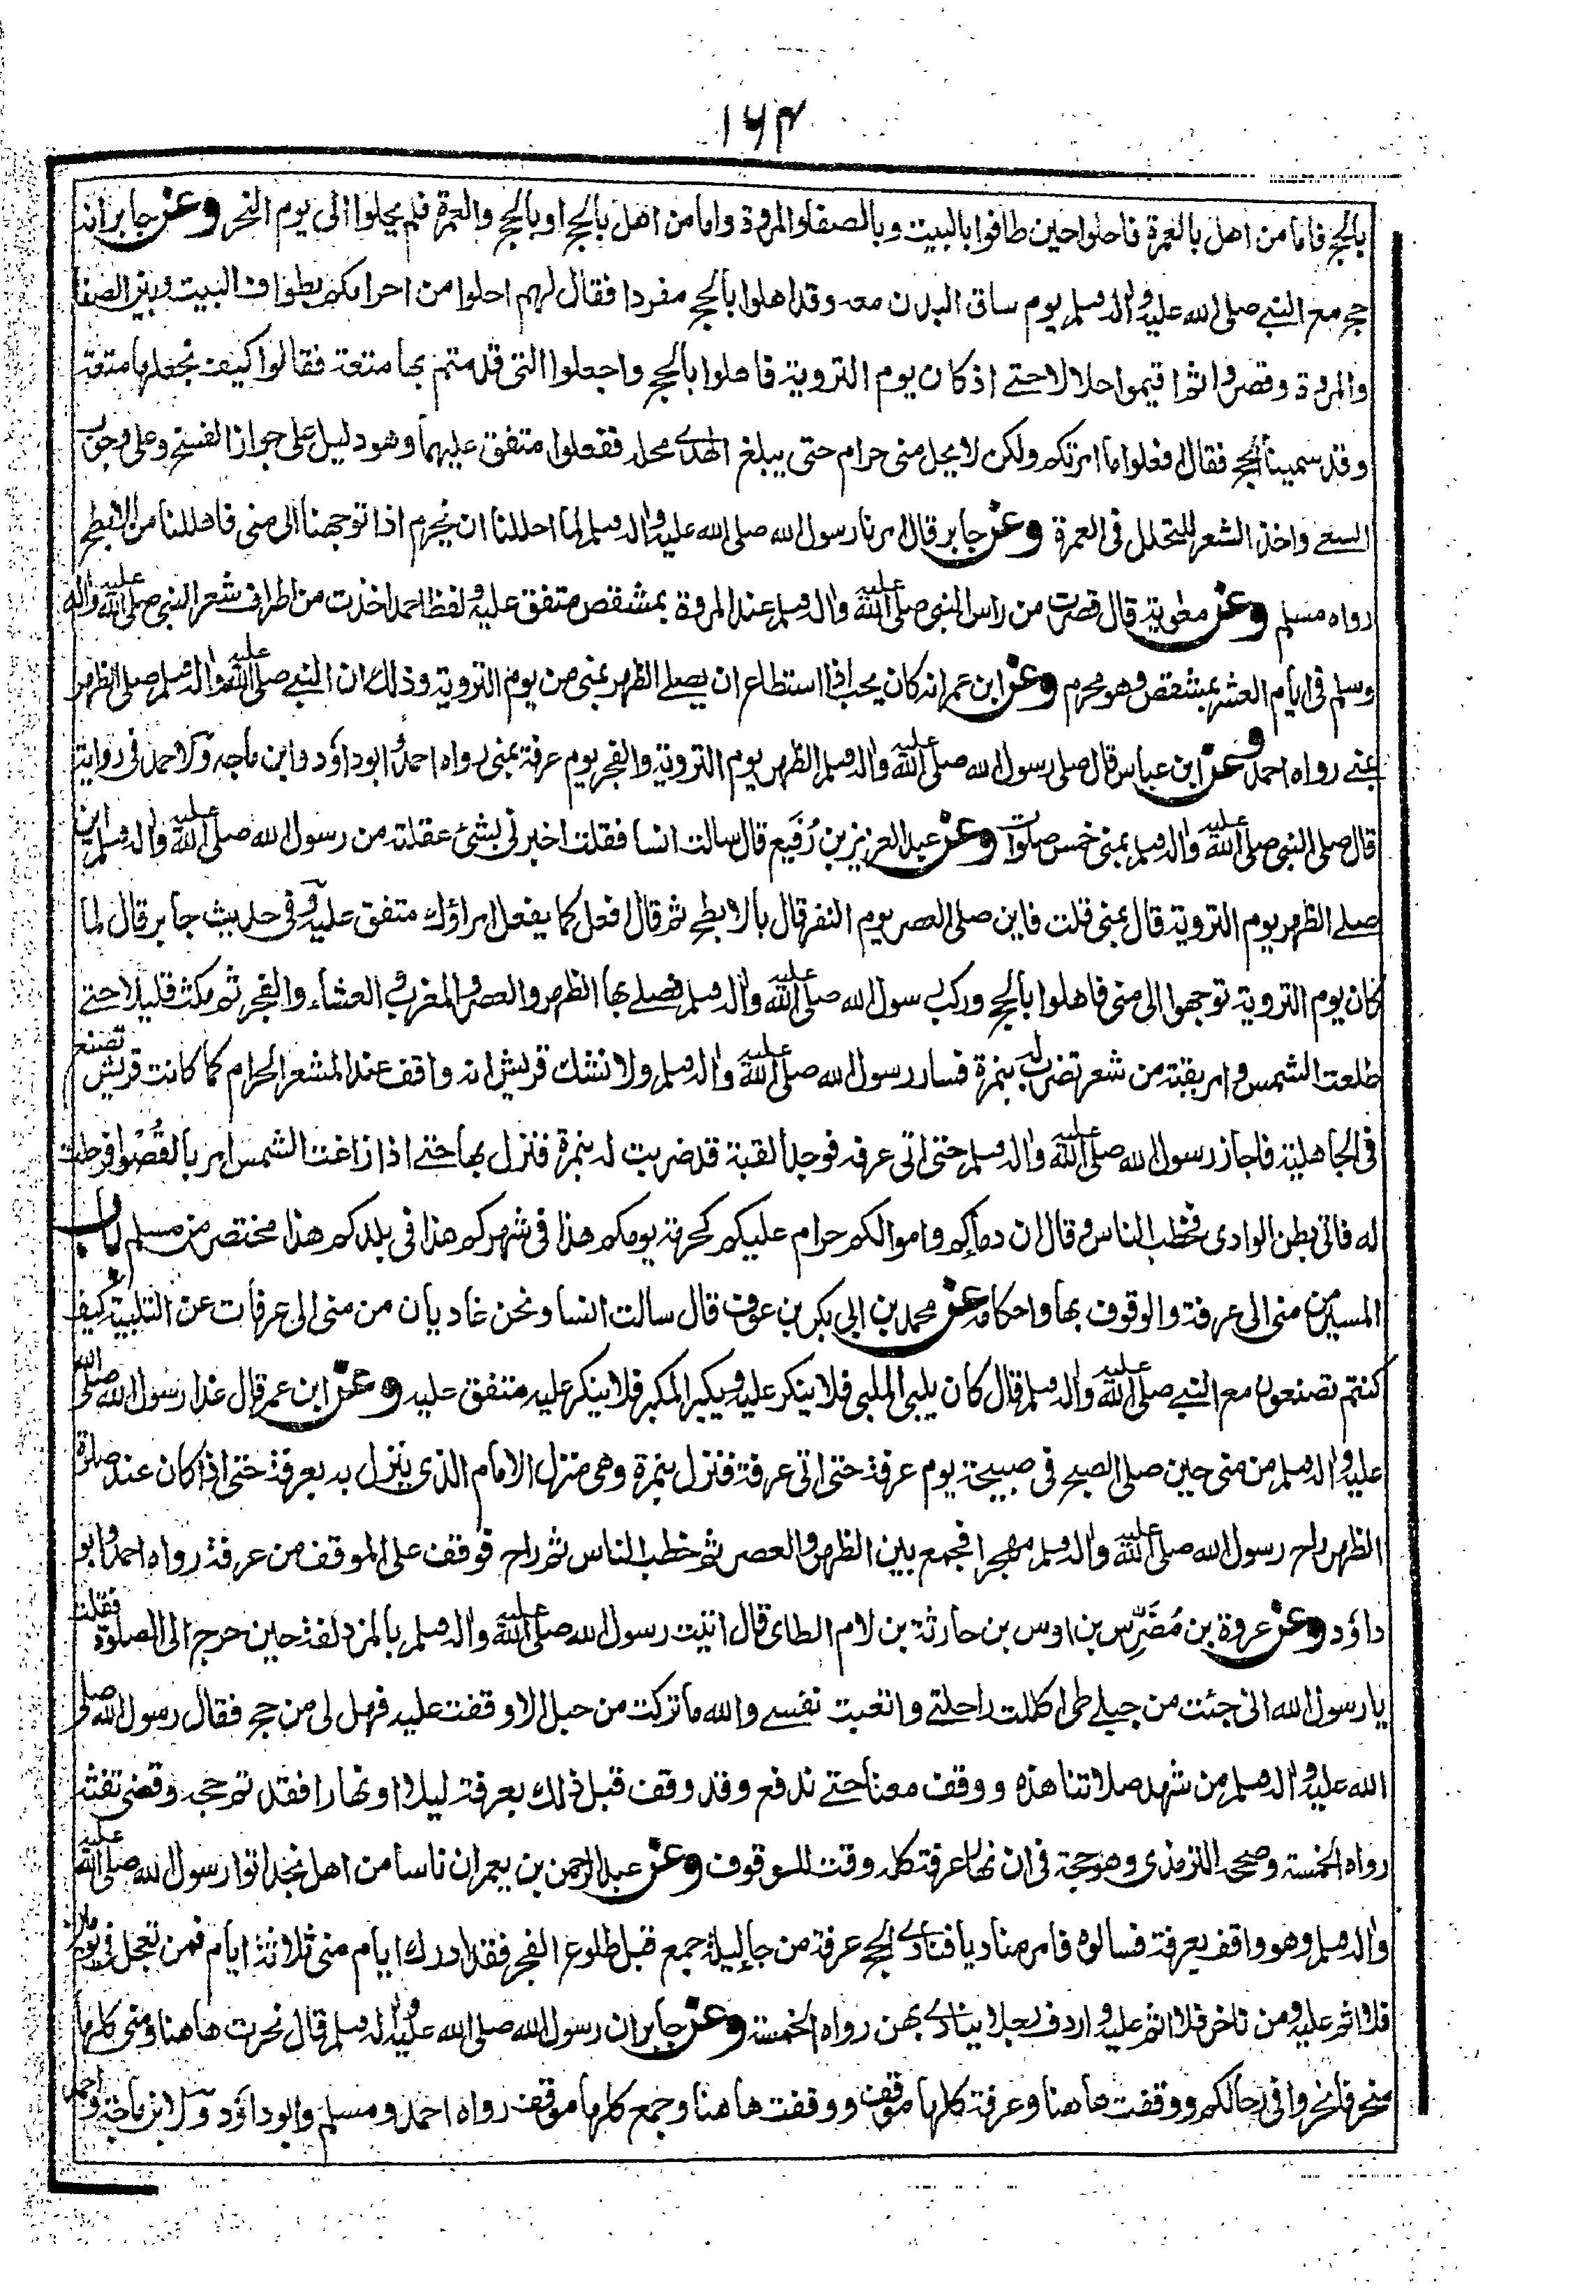 ١٦٤
بالحج فاما من اهل بالعمرة فاحلوا حين طافوا بالبيت وبالصفا والمروة واما من اهل بالحج او بالحج والعمرة فلم يحلوا الى يوم النحر وعن جابر انه
حج مع النبي صلى الله عليه واله وسلم يوم ساق البدن معه وقد اهلوا بالحج مفردا فقال لهم احلوا من احرامكم بطواف البيت وبين الصفا
والمروة وقصروا ثم اقيموا حلالا حتى اذ كان يوم التروية فاهلوا بالحج واجعلوا التى قدمتم بها متعة فقالوا كيف نجعلها متعة
وقد سمينا الحج فقال افعلوا ما امرتكم ولكن لا يحل منى حرام حتى يبلغ الهدى محله ففعلوا متفق عليهما وهو دليل على جواز الفسخ وعلى وجوب
السعى واخذ الشعر للتحلل فى العمرة وعن جابر قال امرنا رسول الله صلى الله عليه واله وسلم لما احللنا ان نحرم اذا توجهنا الى منى فاهللنا من الابطح
رواه مسلم وعن معوية قال قصرت من راس النبى صلى الله عليه واله وسلم عند المروة بمشقص متفق عليه ولفظ احمد اخذت من اطراف شعر النبى صلى الله عليه واله
وسلم فى ايام العشر بمشقص وهو محرم وعن ابن عمر انه كان يحب اذا استطاع ان يصلى الظهر بمنى من يوم التروية وذلك ان النبى صلى الله عليه واله وسلم صلى الظهر
بمنى رواه احمد وعن ابن عباس قال صلى رسول الله صلى الله عليه واله وسلم الظهر يوم التروية والفجر يوم عرفة بمنى رواه احمد وابوداؤد وابن ماجه ولاحمد فى رواية
قال صلى النبى صلى الله عليه واله وسلم بمنى خمس صلوات وعن عبد العزيز بن رُفَيع قال سالت انسا فقلت اخبرنى بشئ عقلته من رسول الله صلى الله عليه واله وسلم اين
صلى الظهر يوم التروية قال بمنى قلت فاين صلى العصر يوم النفر قال بالابطح ثم قال افعل كما يفعل امراؤك متفق عليه وفى حديث جابر قال لما
كان يوم التروية توجهوا الى منى فاهلوا بالحج وركب رسول الله صلى الله عليه واله وسلم فصلى بها الظهر والعصر والمغرب والعشاء والفجر ثم مكث قليلا حتى
طلعت الشمس وامر بقبة من شعر تضرب له بنمرة فسار رسول الله صلى الله عليه واله وسلم ولا تشك قريش انه واقف عند المشعر الحرام كما كانت قريش تصنع
فى الجاهلية فاجاز رسول الله صلى الله عليه واله وسلم حتى اتى عرفه فوجد القبة قد ضربت له بنمرة فنزل بها حتى اذا زاغت الشمس امر بالقُصْوا فرحلت
له فاتى بطن الوادى فخطب الناس وقال ان دماءكم واموالكم حرام عليكم كحرمة يومكم هذا فى شهركم هذا فى بلدكم هذا مختصر من مسلم باب
المسير من منى الى عرفة والوقوف بها واحكامه عن محمد بن ابى بكر بن عوف قال سالت انسا ونحن غاديان من منى الى عرفات عن التلبية كيف
كنتم تصنعون مع النبى صلى الله عليه واله وسلم قال كان يلبى الملبى فلا ينكر عليه ويكبر المكبر فلا ينكر عليه متفق عليه وعن ابن عمر قال غدا رسول الله صلى الله
عليه واله وسلم من منى حين صلى الصبح فى صبيحة يوم عرفة حتى اتى عرفة فنزل بنمرة وهى منزل الامام الذى ينزل به بعرفة حتى اذا كان عند صلوة
الظهر راح رسول الله صلى الله عليه واله وسلم مهجرا فجمع بين الظهر والعصر ثم خطب الناس ثم راح فوقف على الموقف من عرفة رواه احمد وابو
داؤد وعن عروة بن مُضَرِّس بن اوس بن حارثة بن لام الطاى قال اتيت رسول الله صلى الله عليه واله وسلم بالمزدلفة حين خرج الى الصلوة فقلت
يا رسول الله انى جئت من جبلى طى اكللت راحلتى واتعبت نفسى والله ما تركت من حبل الا وقفت عليه فهل لى من حج فقال رسول الله صلى
الله عليه واله وسلم من شهد صلاتنا هذه ووقف معنا حتى ندفع وقد وقف قبل ذلك بعرفة ليلا او نهارا فقد تم حجه وقضى تفثه
رواه الخمسة وصححه الترمذى وهو حجة فى ان نهار عرفة كله وقت للوقوف وعن عبد الرحمن بن يعمر ان ناسا من اهل نجد اتوا رسول الله صلى الله عليه
واله وسلم وهو واقف بعرفة فسالوه فامر مناديا فنادى الحج عرفة من جاء ليلة جمع قبل طلوع الفجر فقد ادرك ايام منى ثلاثة ايام فمن تعجل فى يومين
فلا اثم عليه ومن تاخر فلا اثم عليه واردف رجلا ينادى بهن رواه الخمسة وعن جابر ان رسول الله صلى الله عليه واله وسلم قال نحرت هاهنا ومنى كلها
منحر فانحروا فى رحالكم ووقفت هاهنا وعرفة كلها موقف ووقفت هاهنا وجمع كلها موقف رواه احمد ومسلم وابوداؤد ولابن ماجة واحمد